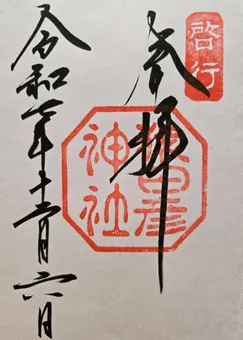 啓行
奉拝
猿田彦
神社
令和 年十二月六日